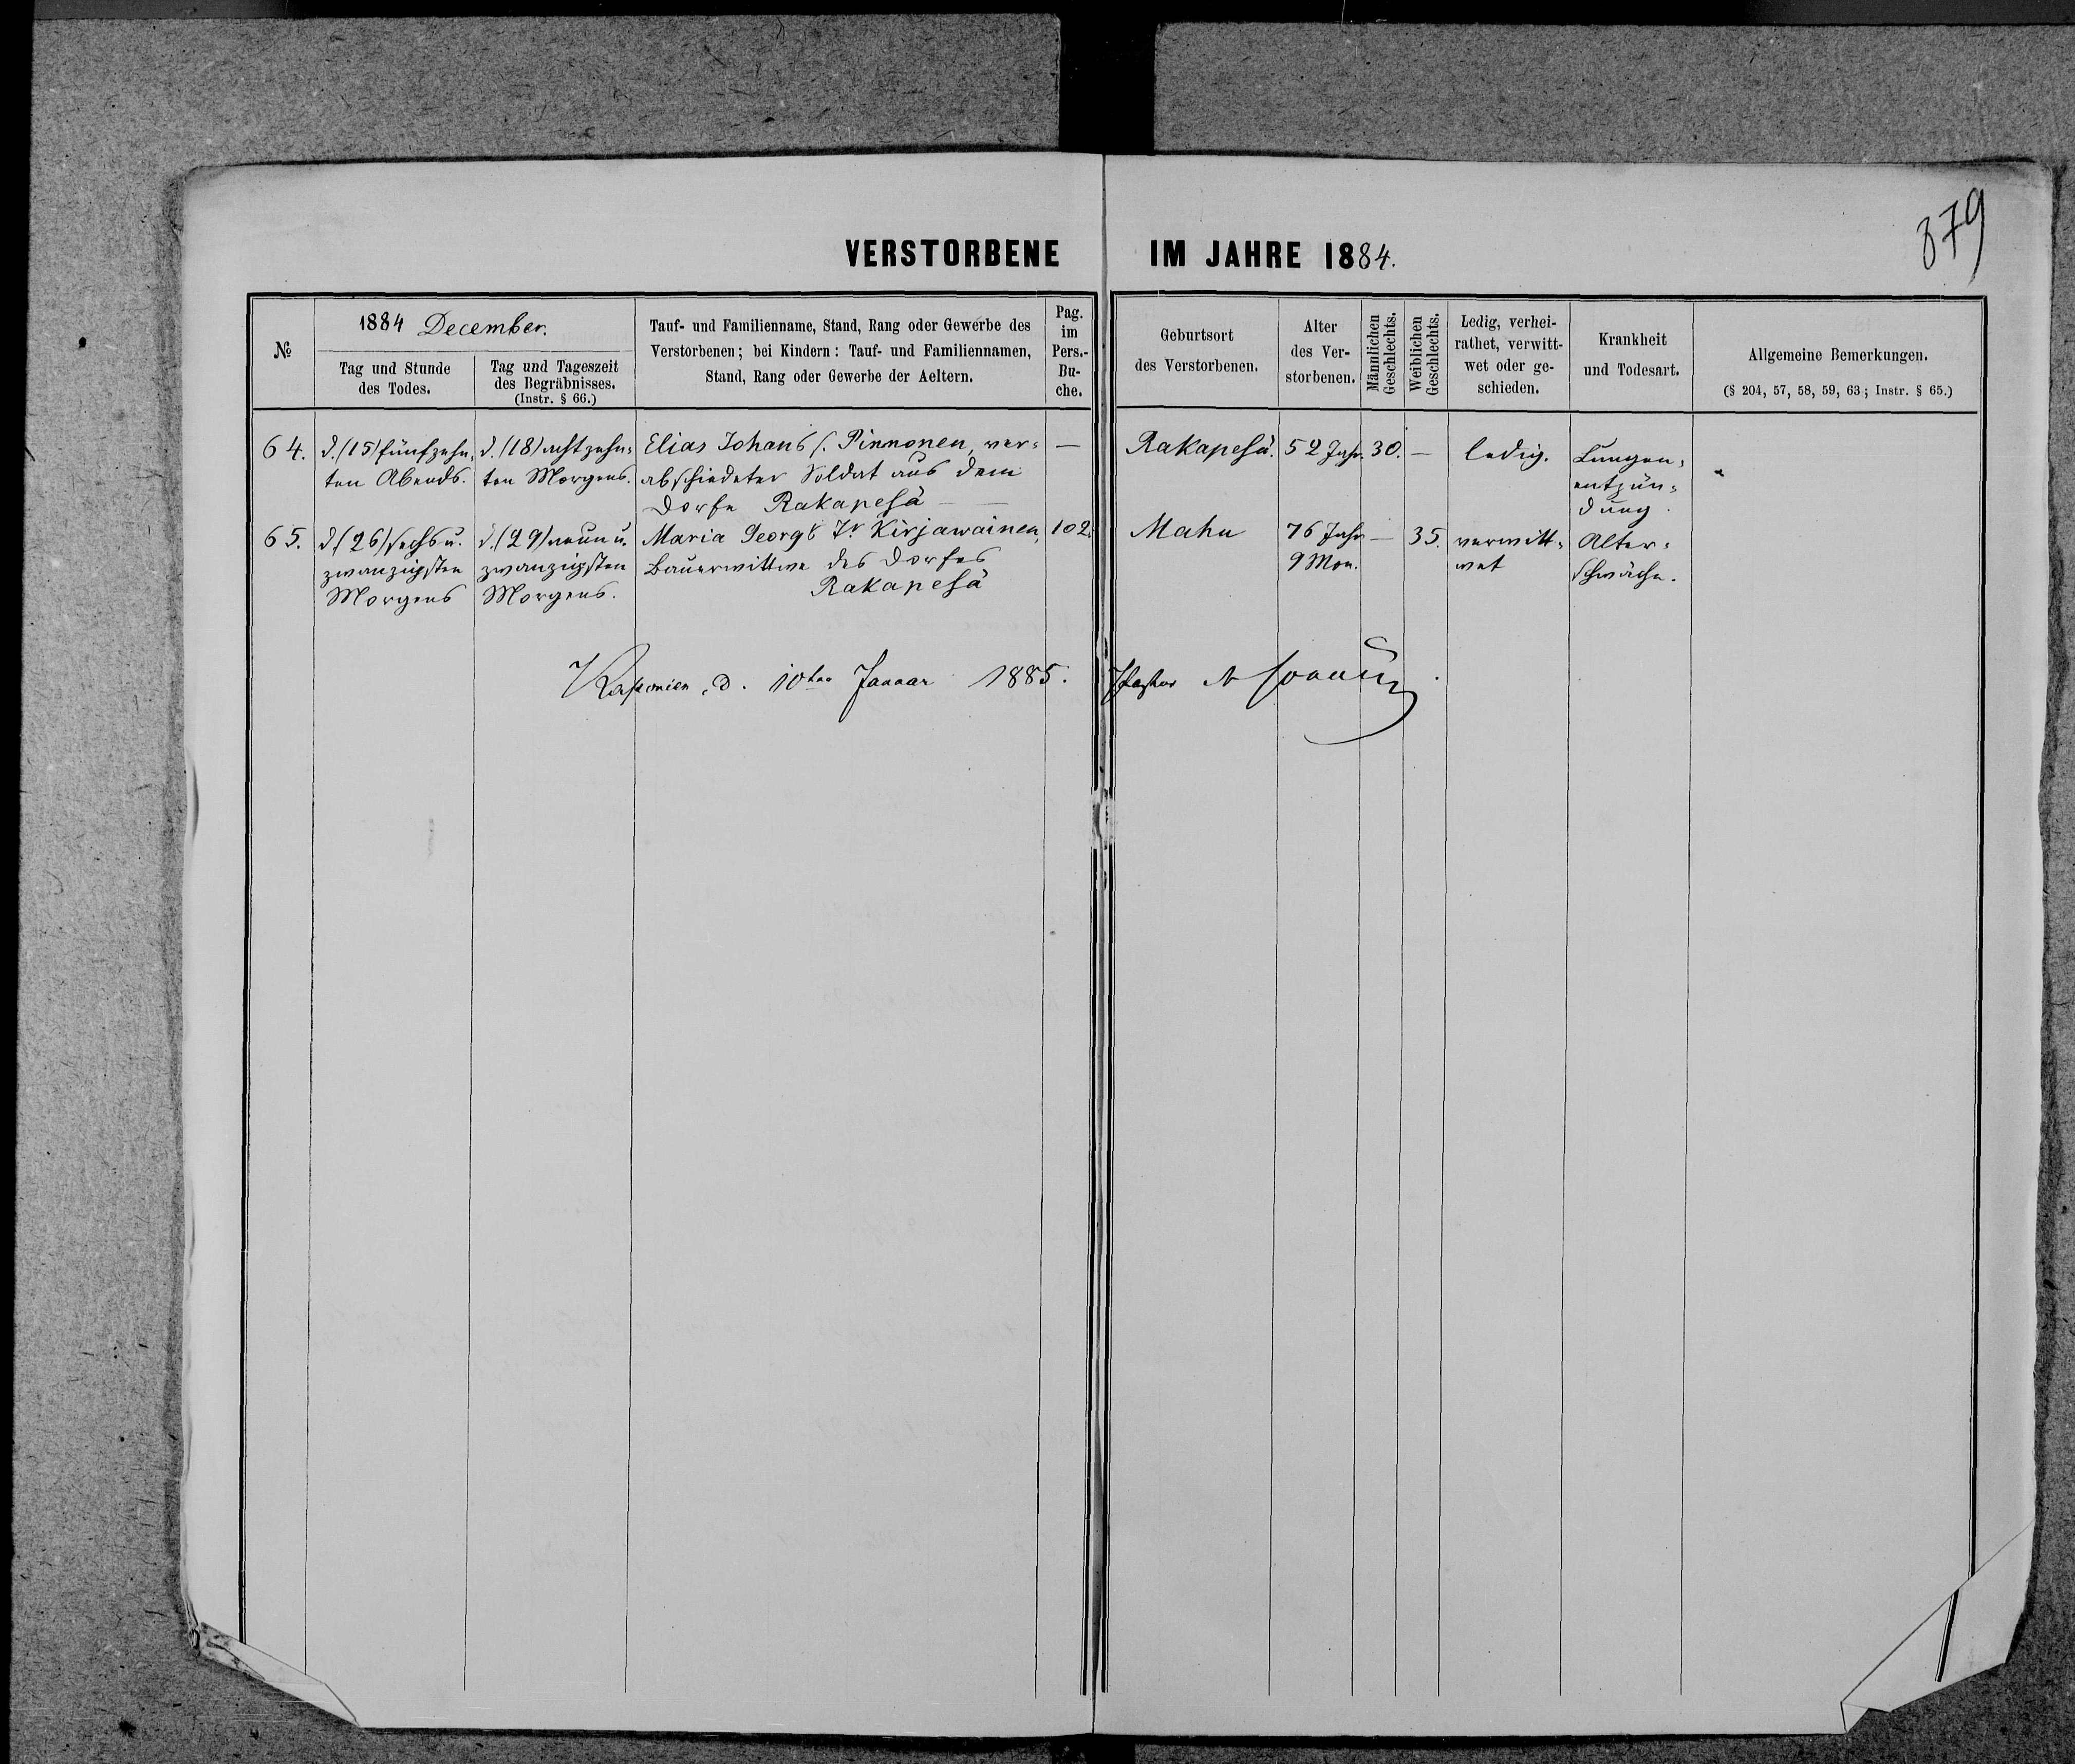 879
VERSTORBENE IM JAHRE 1884.
№
1884 December.
Tag und Stunde
des Todes.
Tag und Tageszeit
des Begräbnisses.
(Instr. § 66.)
Tauf- und Familienname, Stand, Rang oder Gewerbe des
Verstorbenen; bei Kindern: Tauf- und Familiennamen,
Stand, Rang oder Gewerbe der Aeltern.
Pag.
im
Pers.-
Bu-
che.
Geburtsort
des Verstorbenen.
Alter
des Ver-
storbenen.
Männlichen
Geschlechts.
Weiblichen
Geschlechts.
Ledig, verhei-
rathet, verwitt-
wet oder ge-
schieden.
Krankheit
und Todesart.
Allgemeine Bemerkungen.
(§ 204, 57, 58, 59, 63; Instr. § 65.)
64.
d. (15) fünfzehn-
ten Abends.
d. (18) achtzehn-
ten Morgens.
Elias Johans s. Pinnonen, ver-
abschiedeter Soldat aus dem
Dorfe Rakapesä —
—
Rakapesä.
52 Jahr.
30.
—
ledig.
Lungen-
entzün-
dung.
65.
d. (26) sechs u.
zwanzigsten
Morgens
d. (29) neun u.
zwanzigsten
Morgens.
Maria Georgs Tr Kirjawainen,
Bauerwittwe des Dorfes
Rakapesä
102.
Mahu
76 Jahr
9 Mon.
—
35.
verwitt-
wet
Alter-
schwäche.
d. 10ten Januar 1885. Pastor